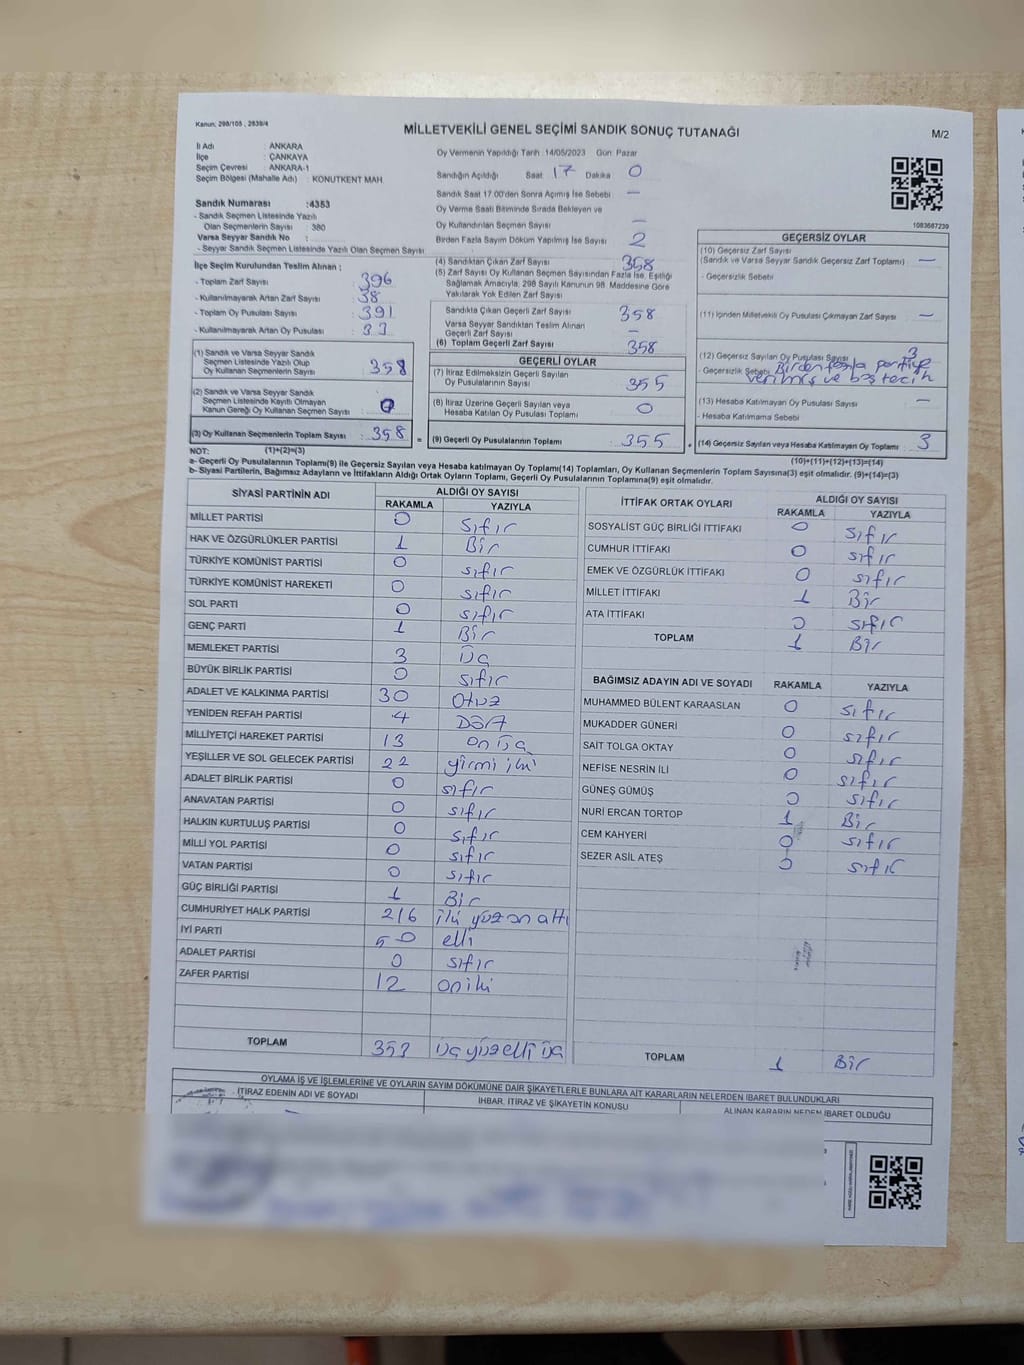 Kanun: 298/105 , 2839/4
MİLLETVEKİLİ GENEL SEÇİMİ SANDIK SONUÇ TUTANAĞI
M/2
İl Adı : ANKARA
İlçe : ÇANKAYA
Seçim Çevresi : ANKARA-1
Seçim Bölgesi (Mahalle Adı) : KONUTKENT MAH.
Sandık Numarası :4353
- Sandık Seçmen Listesinde Yazılı
Olan Seçmenlerin Sayısı : 380
Varsa Seyyar Sandık No :
- Seyyar Sandık Seçmen Listesinde Yazılı Olan Seçmen Sayısı :
Oy Vermenin Yapıldığı Tarih :14/05/2023 Gün: Pazar
Sandığın Açıldığı Saat 17 Dakika 0
Sandık Saat 17.00'den Sonra Açımış İse Sebebi —
Oy Verme Saati Bitiminde Sırada Bekleyen ve
Oy Kullandırılan Seçmen Sayısı —
Birden Fazla Sayım Döküm Yapılmış İse Sayısı 2
1083687239
İlçe Seçim Kurulundan Teslim Alınan ;
- Toplam Zarf Sayısı : 396
- Kullanılmayarak Artan Zarf Sayısı : 38
- Toplam Oy Pusulası Sayısı : 391
- Kullanılmayarak Artan Oy Pusulası : 33
(1) Sandık ve Varsa Seyyar Sandık
Seçmen Listesinde Yazılı Olup
Oy Kullanan Seçmenlerin Sayısı : 358
(2) Sandık ve Varsa Seyyar Sandık
Seçmen Listesinde Kayıtlı Olmayan
Kanun Gereği Oy Kullanan Seçmen Sayısı : 0
(3) Oy Kullanan Seçmenlerin Toplam Sayısı : 358
(4) Sandıktan Çıkan Zarf Sayısı 358
(5) Zarf Sayısı Oy Kullanan Seçmen Sayısından Fazla İse, Eşitliği
Sağlamak Amacıyla, 298 Sayılı Kanunun 98. Maddesine Göre
Yakılarak Yok Edilen Zarf Sayısı
Sandıkta Çıkan Geçerli Zarf Sayısı 358
Varsa Seyyar Sandıktan Teslim Alınan
Geçerli Zarf Sayısı —
(6) Toplam Geçerli Zarf Sayısı 358
GEÇERLİ OYLAR
(7) İtiraz Edilmeksizin Geçerli Sayılan
Oy Pusulalarının Sayısı 355
(8) İtiraz Üzerine Geçerli Sayılan veya
Hesaba Katılan Oy Pusulası Toplamı 0
= (9) Geçerli Oy Pusulalarının Toplamı 355
GEÇERSİZ OYLAR
(10) Geçersiz Zarf Sayısı
(Sandık ve Varsa Seyyar Sandık Geçersiz Zarf Toplamı) : —
- Geçersizlik Sebebi :
(11) İçinden Milletvekili Oy Pusulası Çıkmayan Zarf Sayısı : —
(12) Geçersiz Sayılan Oy Pusulası Sayısı : 3
- Geçersizlik Sebebi : Birden fazla partiye
verilmiş ve boş tercih
(13) Hesaba Katılmayan Oy Pusulası Sayısı : —
- Hesaba Katılmama Sebebi :
(14) Geçersiz Sayılan veya Hesaba Katılmayan Oy Toplamı : 3
NOT: (1)+(2)=(3)
(10)+(11)+(12)+(13)=(14)
a- Geçerli Oy Pusulalarının Toplamı(9) ile Geçersiz Sayılan veya Hesaba katılmayan Oy Toplamı(14) Toplamları, Oy Kullanan Seçmenlerin Toplam Sayısına(3) eşit olmalıdır. (9)+(14)=(3)
b- Siyasi Partilerin, Bağımsız Adayların ve İttifakların Aldığı Ortak Oyların Toplamı, Geçerli Oy Pusulalarının Toplamına(9) eşit olmalıdır.
SİYASİ PARTİNİN ADI ALDIĞI OY SAYISI
RAKAMLA YAZIYLA
MİLLET PARTİSİ 0 sıfır
HAK VE ÖZGÜRLÜKLER PARTİSİ 1 Bir
TÜRKİYE KOMÜNİST PARTİSİ 0 sıfır
TÜRKİYE KOMÜNİST HAREKETİ 0 sıfır
SOL PARTİ 0 sıfır
GENÇ PARTİ 1 Bir
MEMLEKET PARTİSİ 3 üç
BÜYÜK BİRLİK PARTİSİ 0 sıfır
ADALET VE KALKINMA PARTİSİ 30 Otuz
YENİDEN REFAH PARTİSİ 4 Dört
MİLLİYETÇİ HAREKET PARTİSİ 13 on üç
YEŞİLLER VE SOL GELECEK PARTİSİ 22 yirmi iki
ADALET BİRLİK PARTİSİ 0 sıfır
ANAVATAN PARTİSİ 0 sıfır
HALKIN KURTULUŞ PARTİSİ 0 sıfır
MİLLİ YOL PARTİSİ 0 sıfır
VATAN PARTİSİ 0 sıfır
GÜÇ BİRLİĞİ PARTİSİ 1 Bir
CUMHURİYET HALK PARTİSİ 216 iki yüz on altı
İYİ PARTİ 50 elli
ADALET PARTİSİ 0 sıfır
ZAFER PARTİSİ 12 oniki
TOPLAM 353 üç yüz elli üç
İTTİFAK ORTAK OYLARI ALDIĞI OY SAYISI
RAKAMLA YAZIYLA
SOSYALİST GÜÇ BİRLİĞİ İTTİFAKI 0 sıfır
CUMHUR İTTİFAKI 0 sıfır
EMEK VE ÖZGÜRLÜK İTTİFAKI 0 sıfır
MİLLET İTTİFAKI 1 Bir
ATA İTTİFAKI 0 sıfır
TOPLAM 1 Bir
BAĞIMSIZ ADAYIN ADI VE SOYADI RAKAMLA YAZIYLA
MUHAMMED BÜLENT KARAASLAN 0 sıfır
MUKADDER GÜNERİ 0 sıfır
SAİT TOLGA OKTAY 0 sıfır
NEFİSE NESRİN İLİ 0 sıfır
GÜNEŞ GÜMÜŞ 0 sıfır
NURİ ERCAN TORTOP 1 Bir
CEM KAHYERİ 0 sıfır
SEZER ASİL ATEŞ 0 sıfır
TOPLAM 1 Bir
OYLAMA İŞ VE İŞLEMLERİNE VE OYLARIN SAYIM DÖKÜMÜNE DAİR ŞİKAYETLERLE BUNLARA AİT KARARLARIN NELERDEN İBARET BULUNDUKLARI
İTİRAZ EDENİN ADI VE SOYADI
İHBAR, İTİRAZ VE ŞİKAYETİN KONUSU
ALINAN KARARIN NEDEN İBARET OLDUĞU